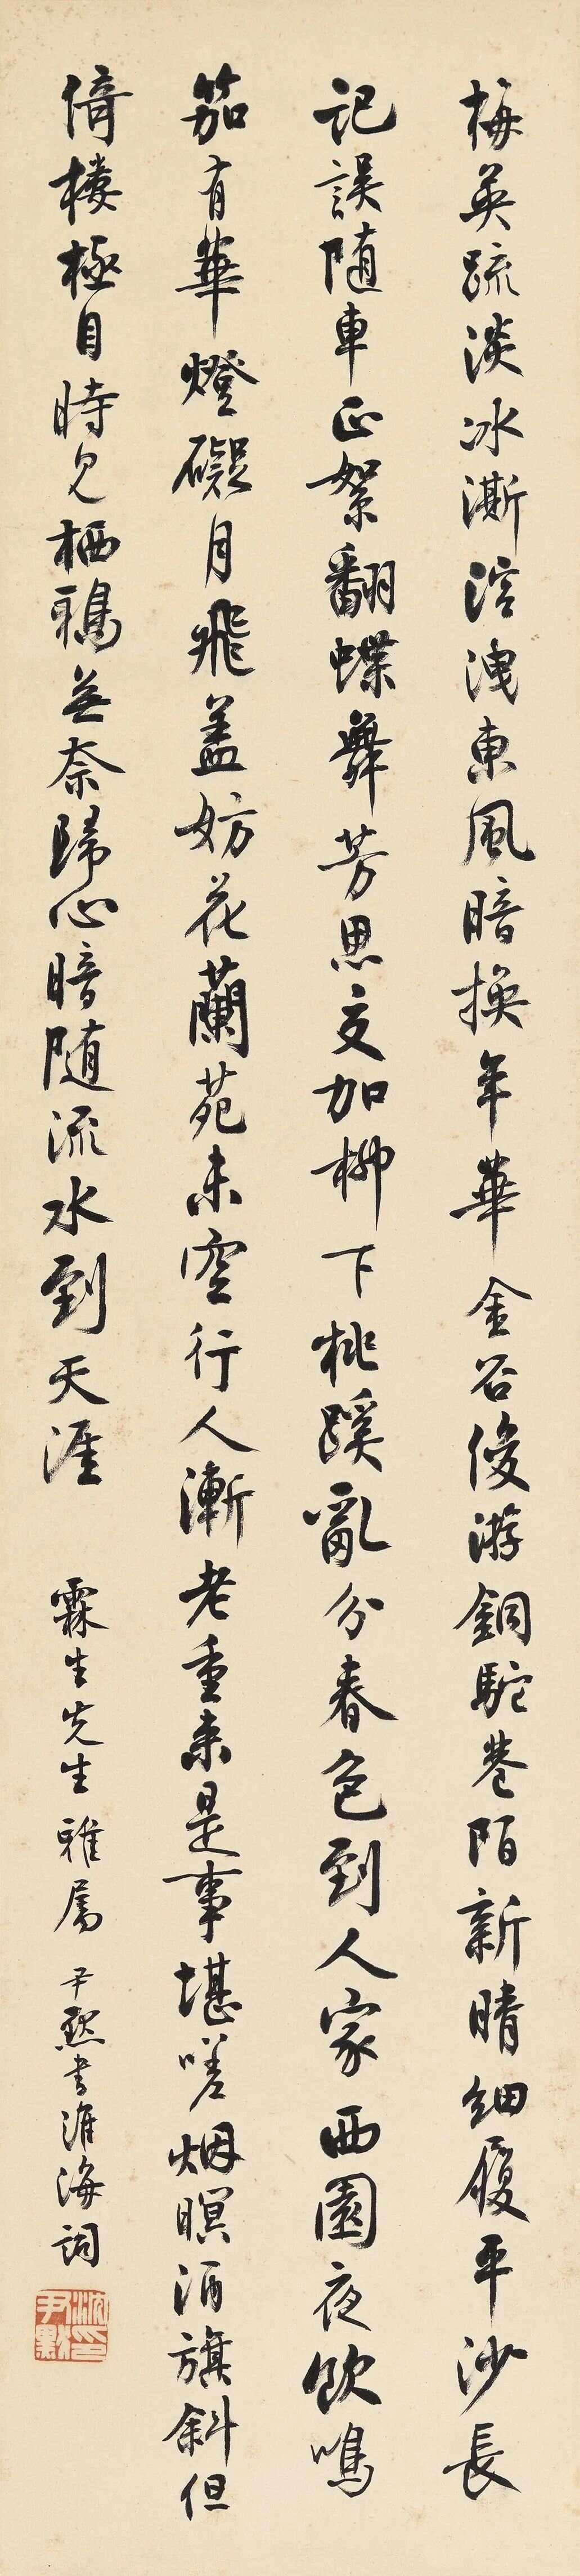 梅英疏淡冰澌溶洩東風暗換年華金谷俊游銅駝巷陌新晴細履平沙長
記誤随車正絮翻蝶舞芳思交加柳下桃蹊亂分春色到人家西園夜飲鳴
笳有華燈礙月飛蓋妨花蘭苑未空行人漸老重来是事堪嗟烟暝酒旗斜但
倚樓極目時見栖鴉無奈歸心暗随流水到天涯
霖生先生雅属 尹默書淮海詞
沈尹默印